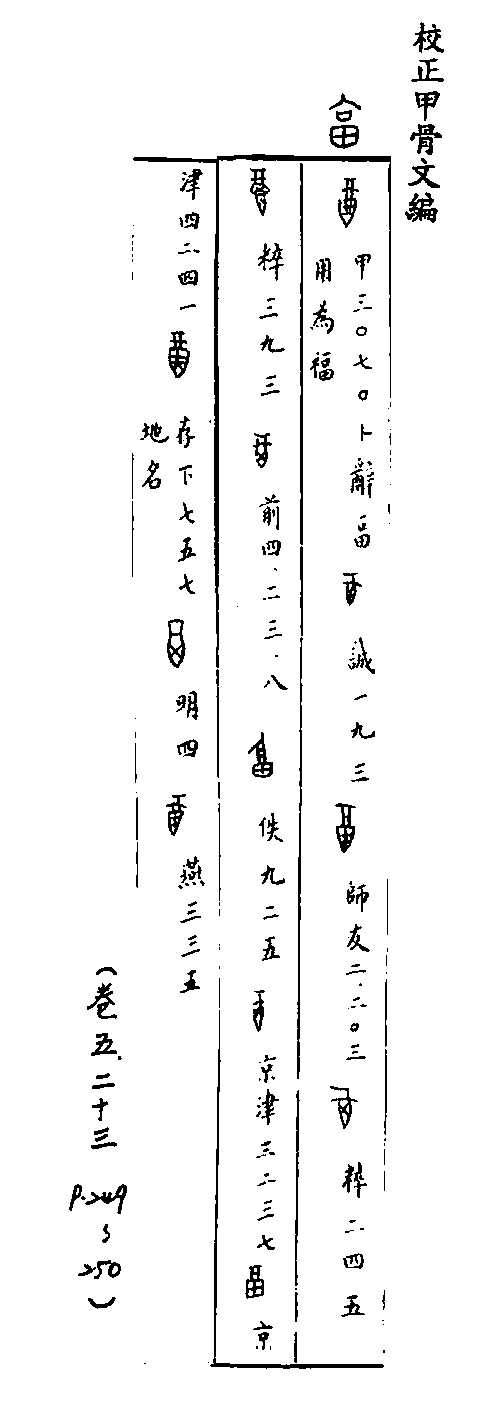 校正甲骨文編
甲三〇七〇卜辭畐
用為福
誠一九三
師友二.二〇三
粹二四五
粹三九三
前四.二三.八
佚九二五
京津三二三七
京
津四二四一
存下七五七
地名
明四
燕三三五
(卷五.二十三 P.249~250)